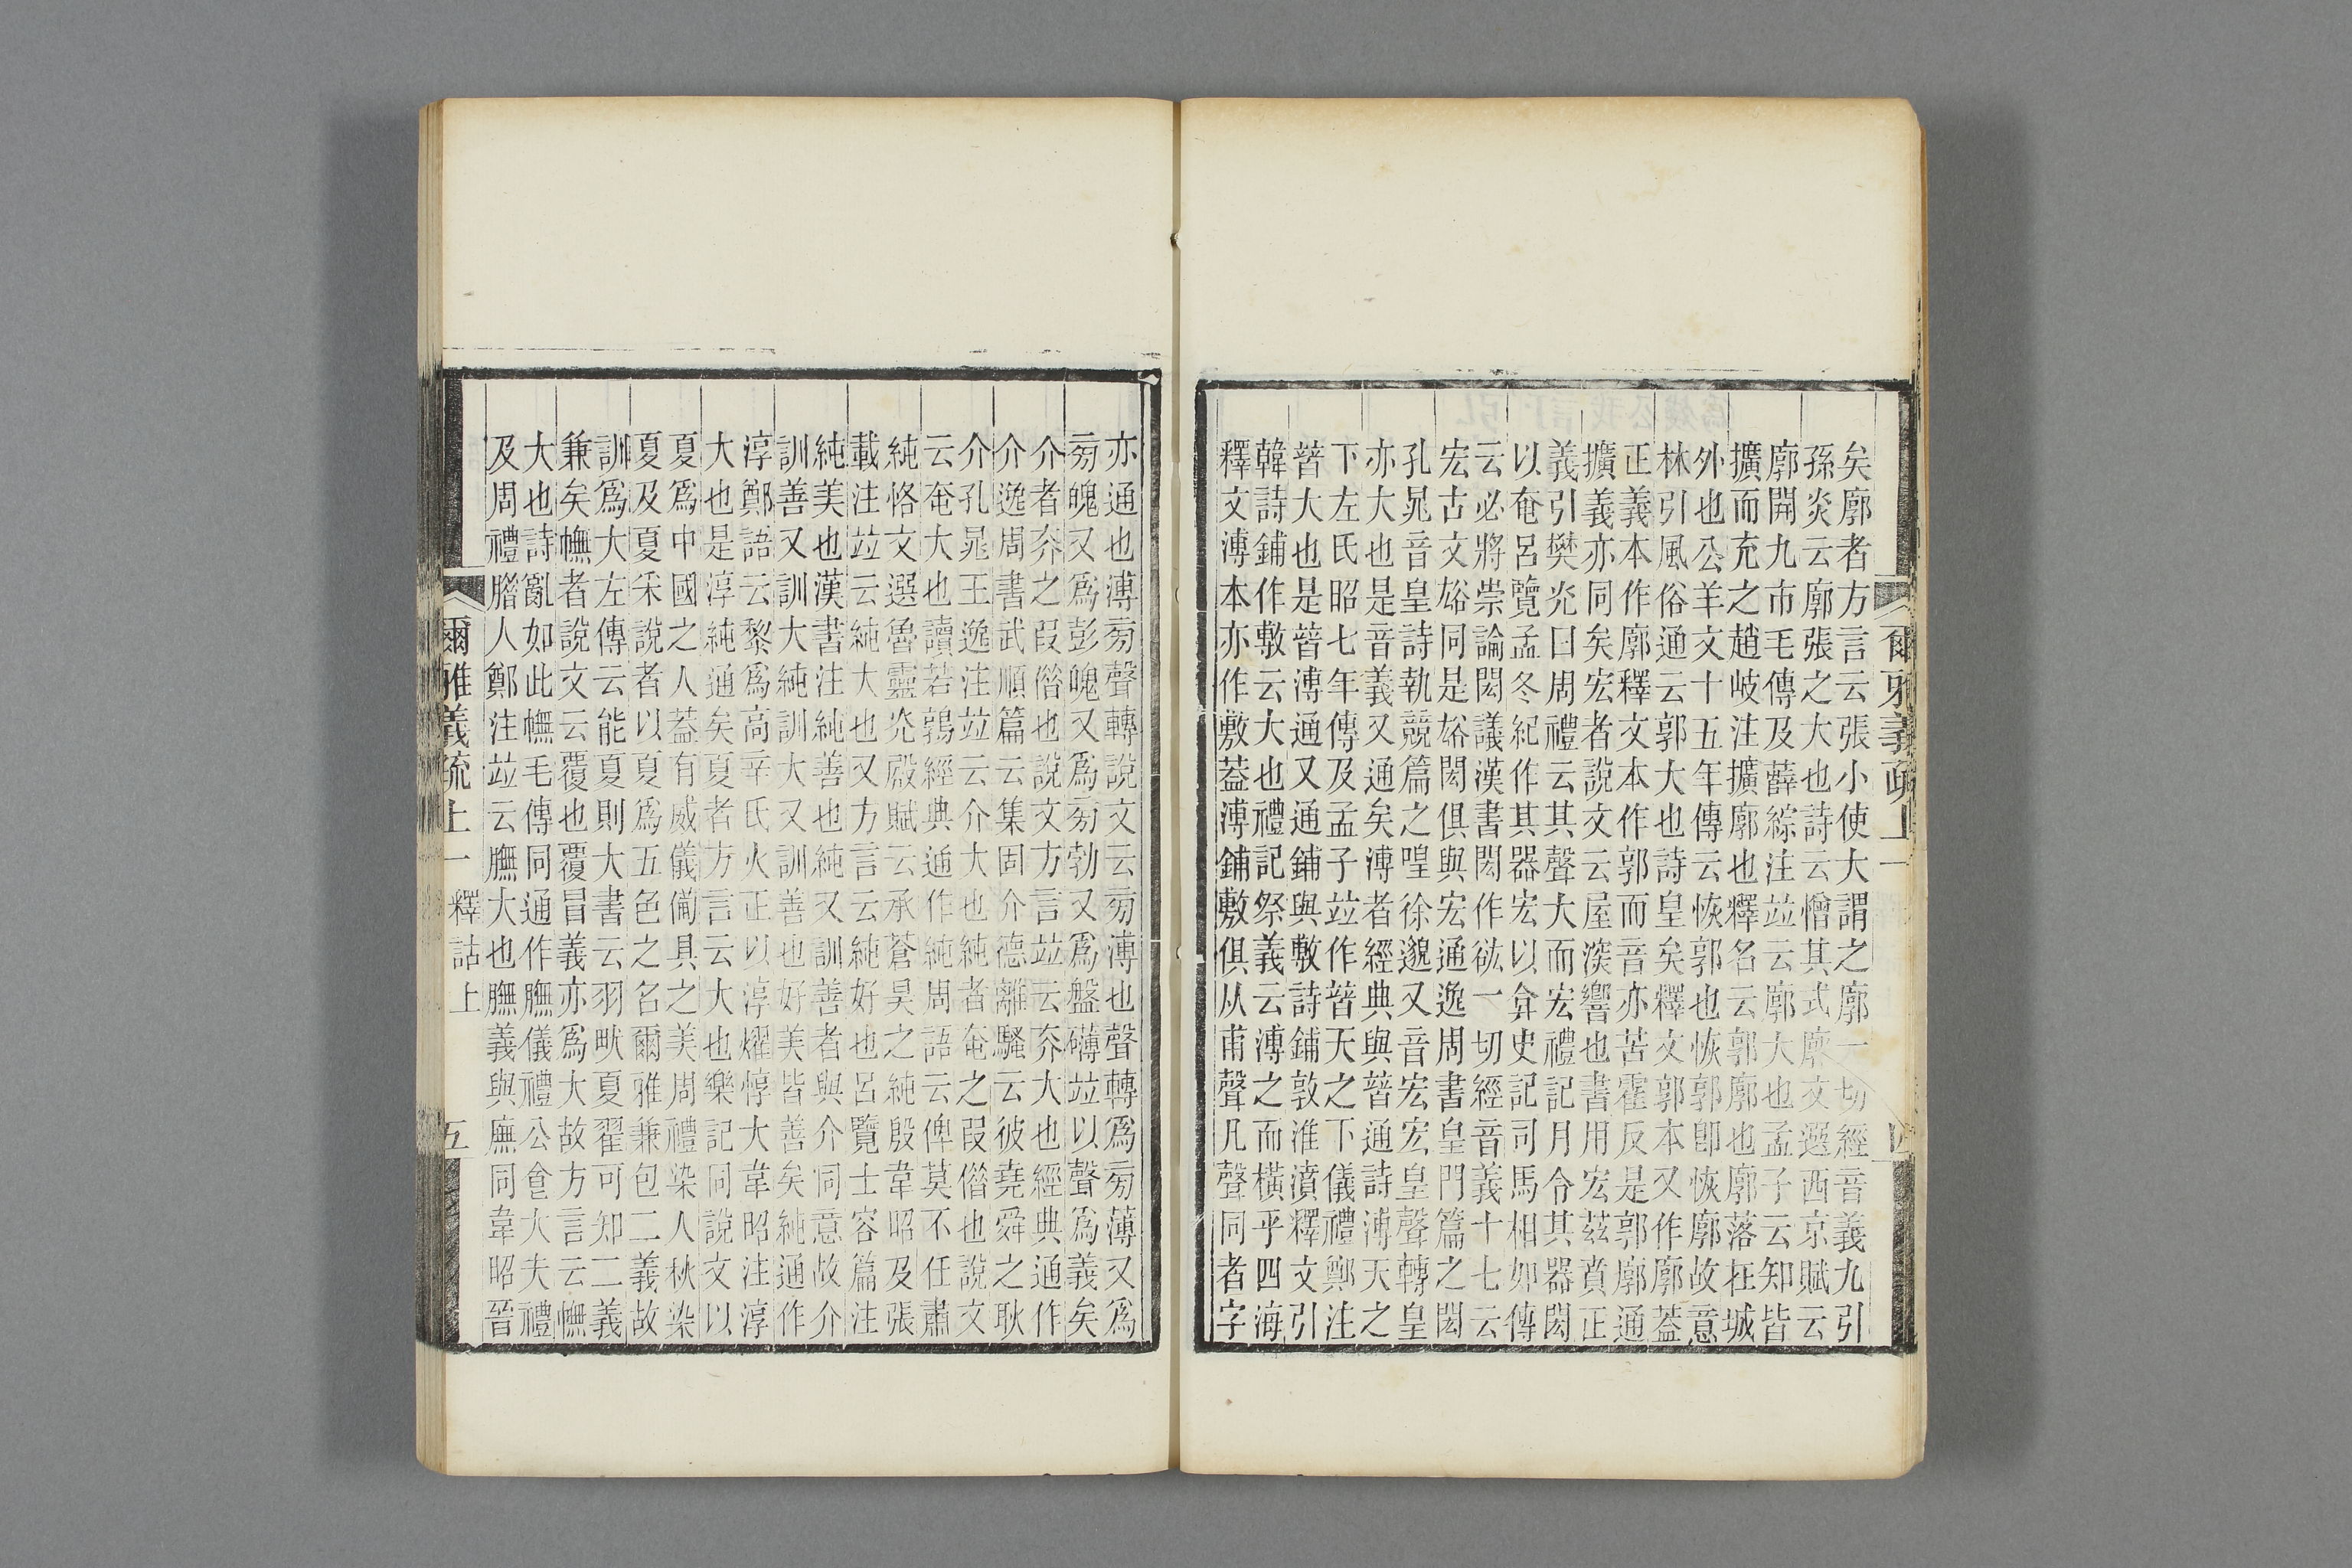 矣廓者方言云張小使大謂之廓一切經音義九引
孫炎云廓張之大也詩云憎其式廓文選西京賦云
廓開九市毛傳及薛綜注竝云廓大也孟子云知皆
擴而充之趙岐注擴廓也釋名云郭廓也廓落在城
外也公羊文十五年傳云恢郭也恢郭卽恢廓故意
林引風俗通云郭大也詩皇矣釋文郭本又作廓蓋
正義本作廓釋文本作郭而音亦苦霍反是郭廓通
擴義亦同矣宏者說文云屋深響也書用宏茲賁正
義引樊光曰周禮云其聲大而宏禮記月令其器閎
以奄呂覽孟冬紀作其器宏以弇史記司馬相如傳
云必將崇論閎議漢書閎作竑一切經音義十七云
宏古文㓋同是㓋閎俱與宏通逸周書皇門篇之閎
孔晁音皇詩執競篇之喤徐邈又音宏宏皇聲轉皇
亦大也是音義又通矣溥者經典與普通詩溥天之
下左氏昭七年傳及孟子竝作普天之下儀禮鄭注
普大也是普溥通又通鋪與敷詩鋪敦淮濆釋文引
韓詩鋪作敷云大也禮記祭義云溥之而橫乎四海
釋文溥本亦作敷蓋溥鋪敷俱从甫聲凡聲同者字
爾雅義疏上一
四
亦通也溥㫄聲轉說文云㫄溥也聲轉爲㫄薄又爲
㫄魄又爲彭魄又爲㫄勃又爲盤礴竝以聲爲義矣
介者夰之叚偺也說文方言竝云夰大也經典通作
介逸周書武順篇云集固介德離騷云彼堯舜之耿
介孔晁王逸注竝云介大也純者奄之叚偺也說文
云奄大也讀若鶉經典通作純周語云俾莫不任肅
純恪文選魯靈光殿賦云承蒼昊之純殷韋昭及張
載注竝云純大也又方言云純好也呂覽士容篇注
純美也漢書注純善也純又訓善者與介同意故介
訓善又訓大純訓大又訓善也好美皆善矣純通作
淳鄭語云黎爲高辛氏火正以淳燿惇大韋昭注淳
大也是淳純通矣夏者方言云大也樂記同說文以
夏爲中國之人蓋有威儀備具之美周禮染人秋染
夏及夏采說者以夏爲五色之名爾雅兼包二義故
訓爲大左傳云能夏則大書云羽畎夏翟可知二義
兼矣幠者說文云覆也覆冒義亦爲大故方言云幠
大也詩亂如此幠毛傳同通作膴儀禮公食大夫禮
及周禮腊人鄭注竝云膴大也膴義與廡同韋昭晉
爾雅義疏上一
釋詁上
五